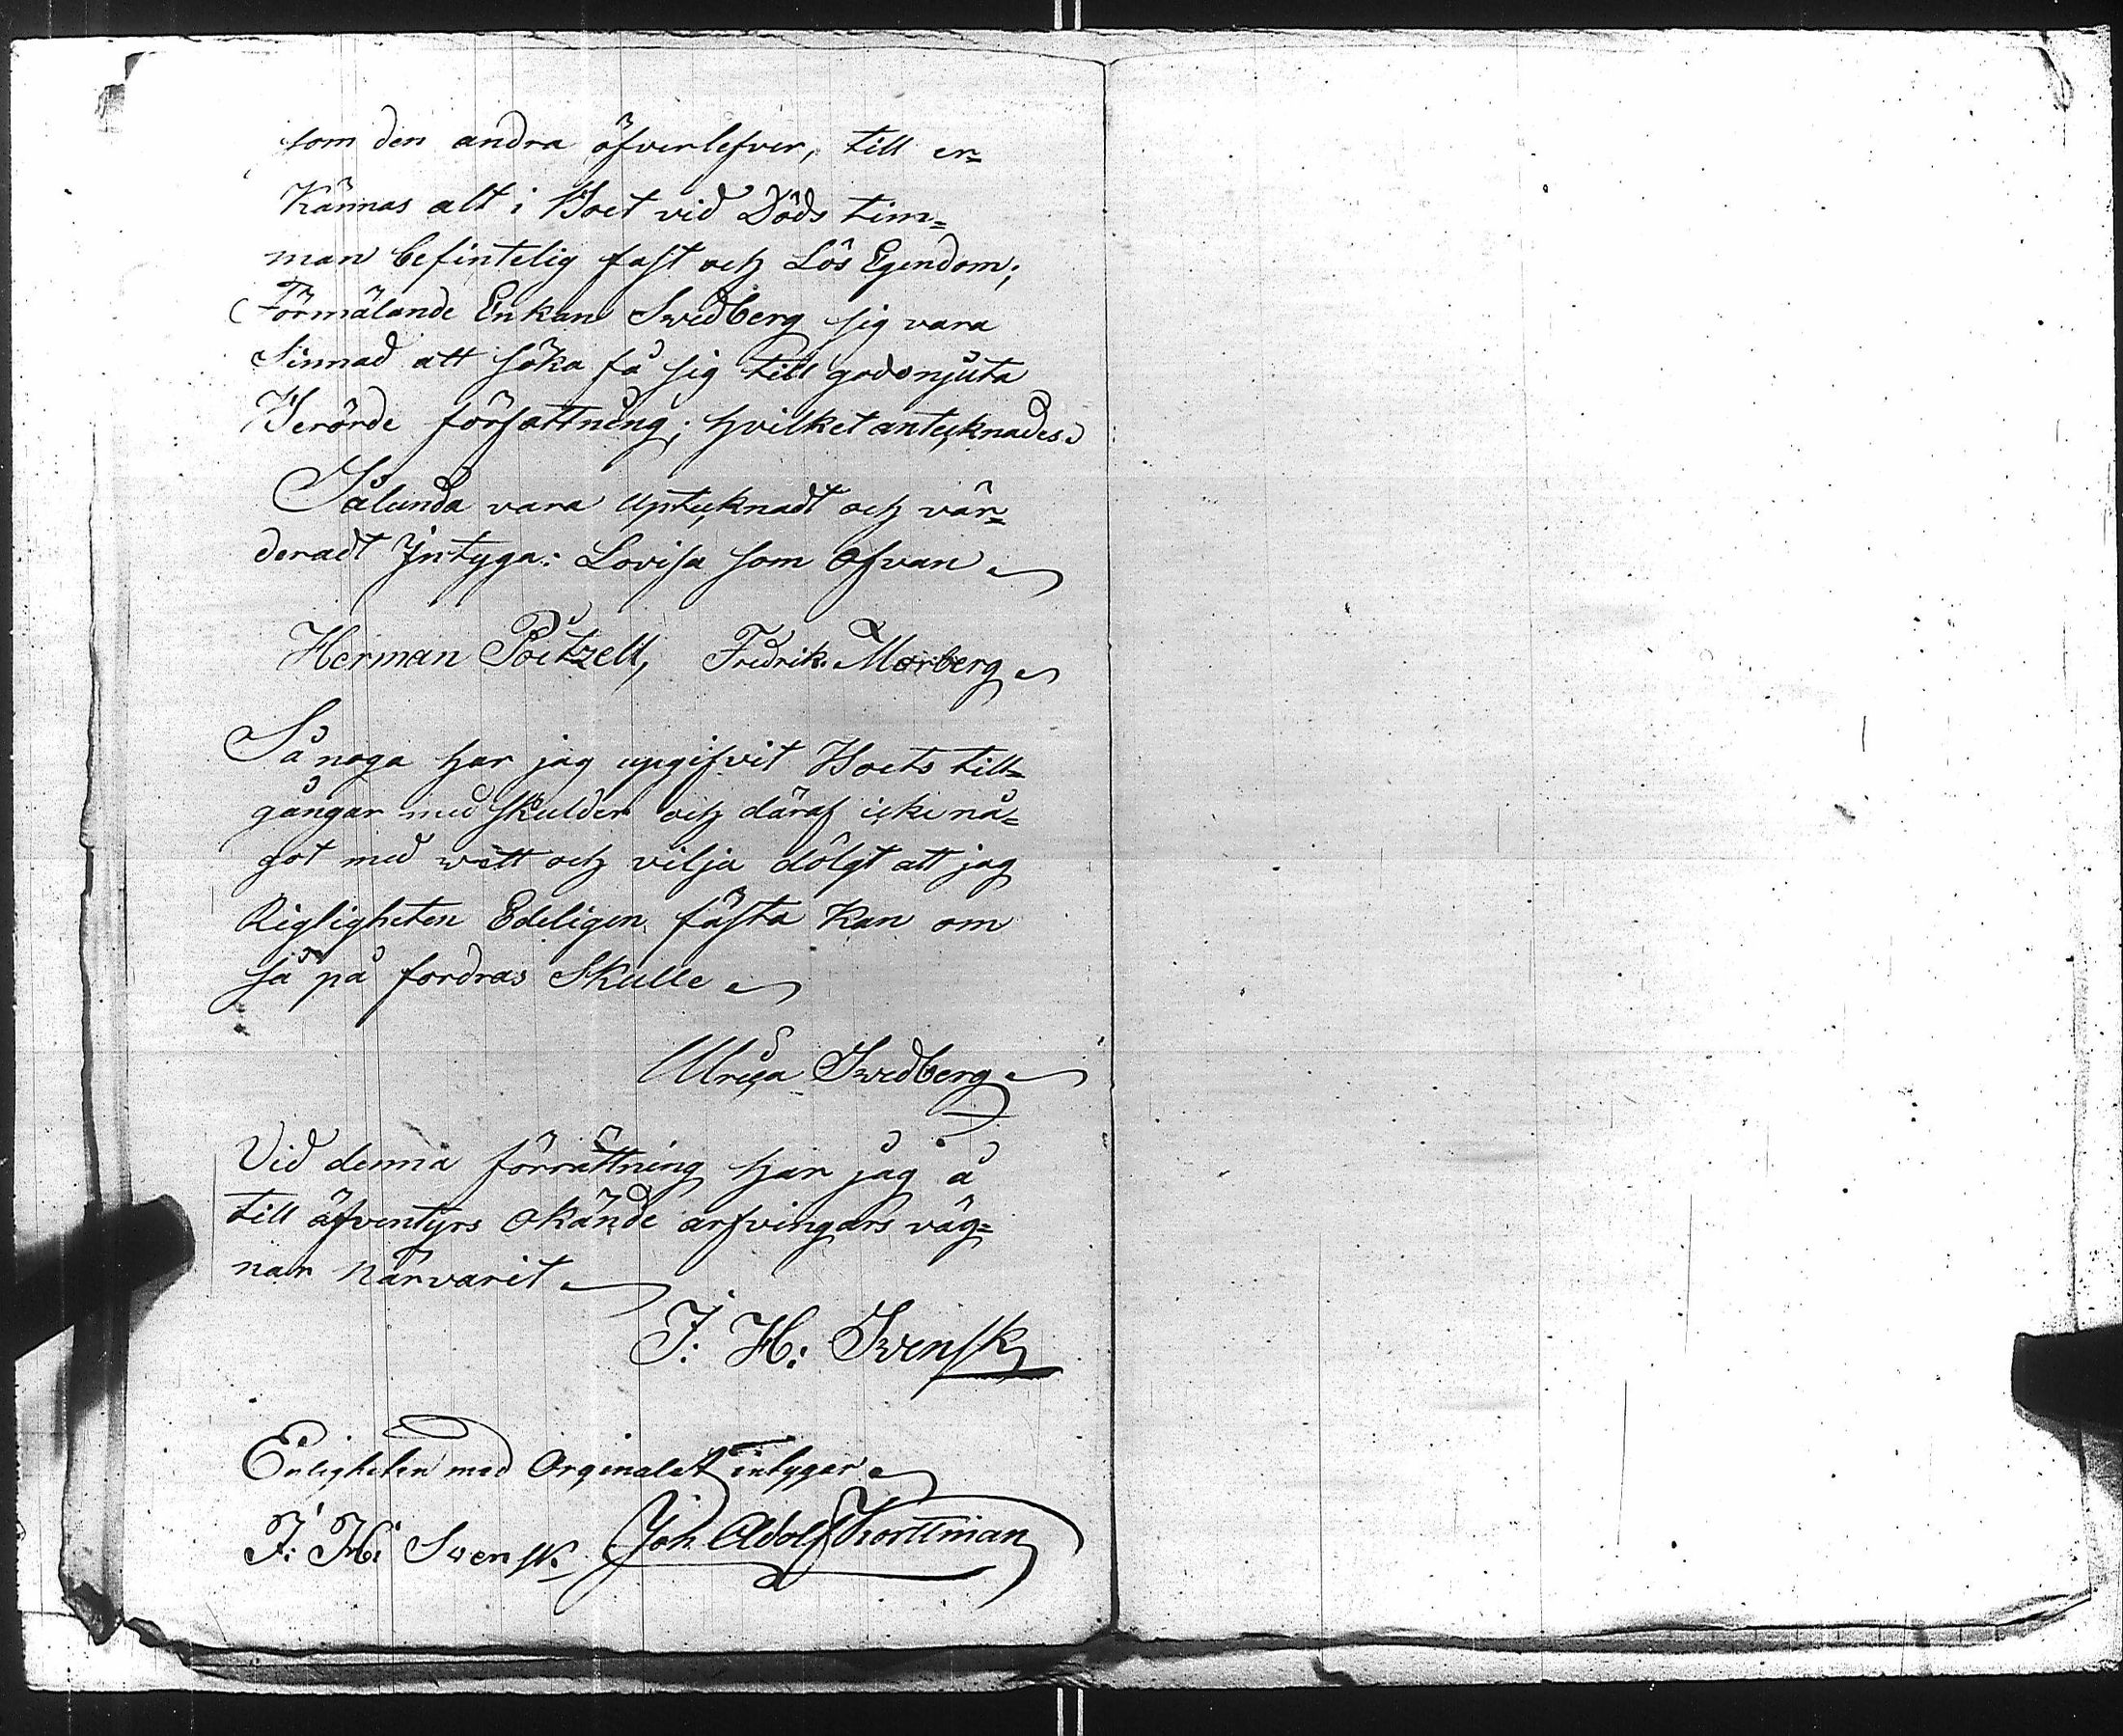 som den andra öfverlefver, till er=
kännas alt i Boet vid Döds tim=
man befintelig fast och Lös Egendom;
Förmälande Enkan Swedberg sig vara
Sinnad att söka få sig till godo njuta
Berörde författning; hvilket antecknades.
Sålunda vara uptecknadt och vär=
deradt Intyga: Lovisa som ofvan
Herman Poitzell, Fredrik Morberg
Så noga har jag upgifvit Boets till=
gångar med skulder och däraf icke nå=
got med wett och vilja dölgt att jag
Rigtigheten Edeligen fästa kan om
så på fordras Skulle
Ulrica Swedberg
Vid denna förrättning har jag å
till äfventyrs okände arfvingars väg=
nar närvarit
J: H: Svensk
Enligheten med Orginalet intygar
J: H: Svensk. Joh Adolf Korttman